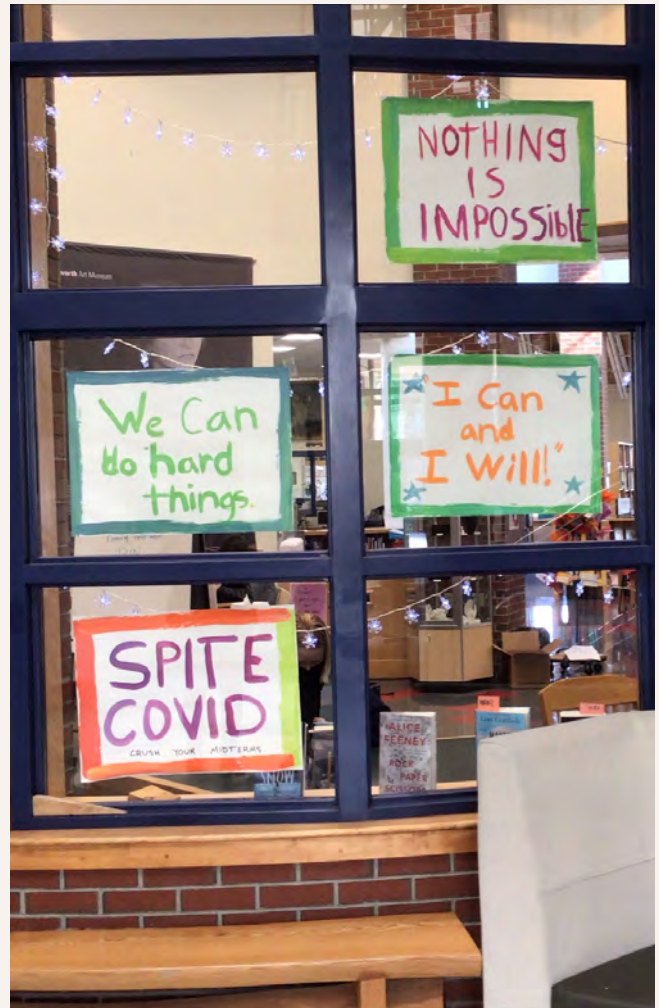 NOTHING
IS
IMPOSSIblE
worth Art Museum
We Can
do hard
things.
"I Can
and
I Will!"
SPITE
COVID
CRUSH YOUR MIDTERMS
ALICE
FEENEY
ROCK
PAPER
SCISSORS
SNOW